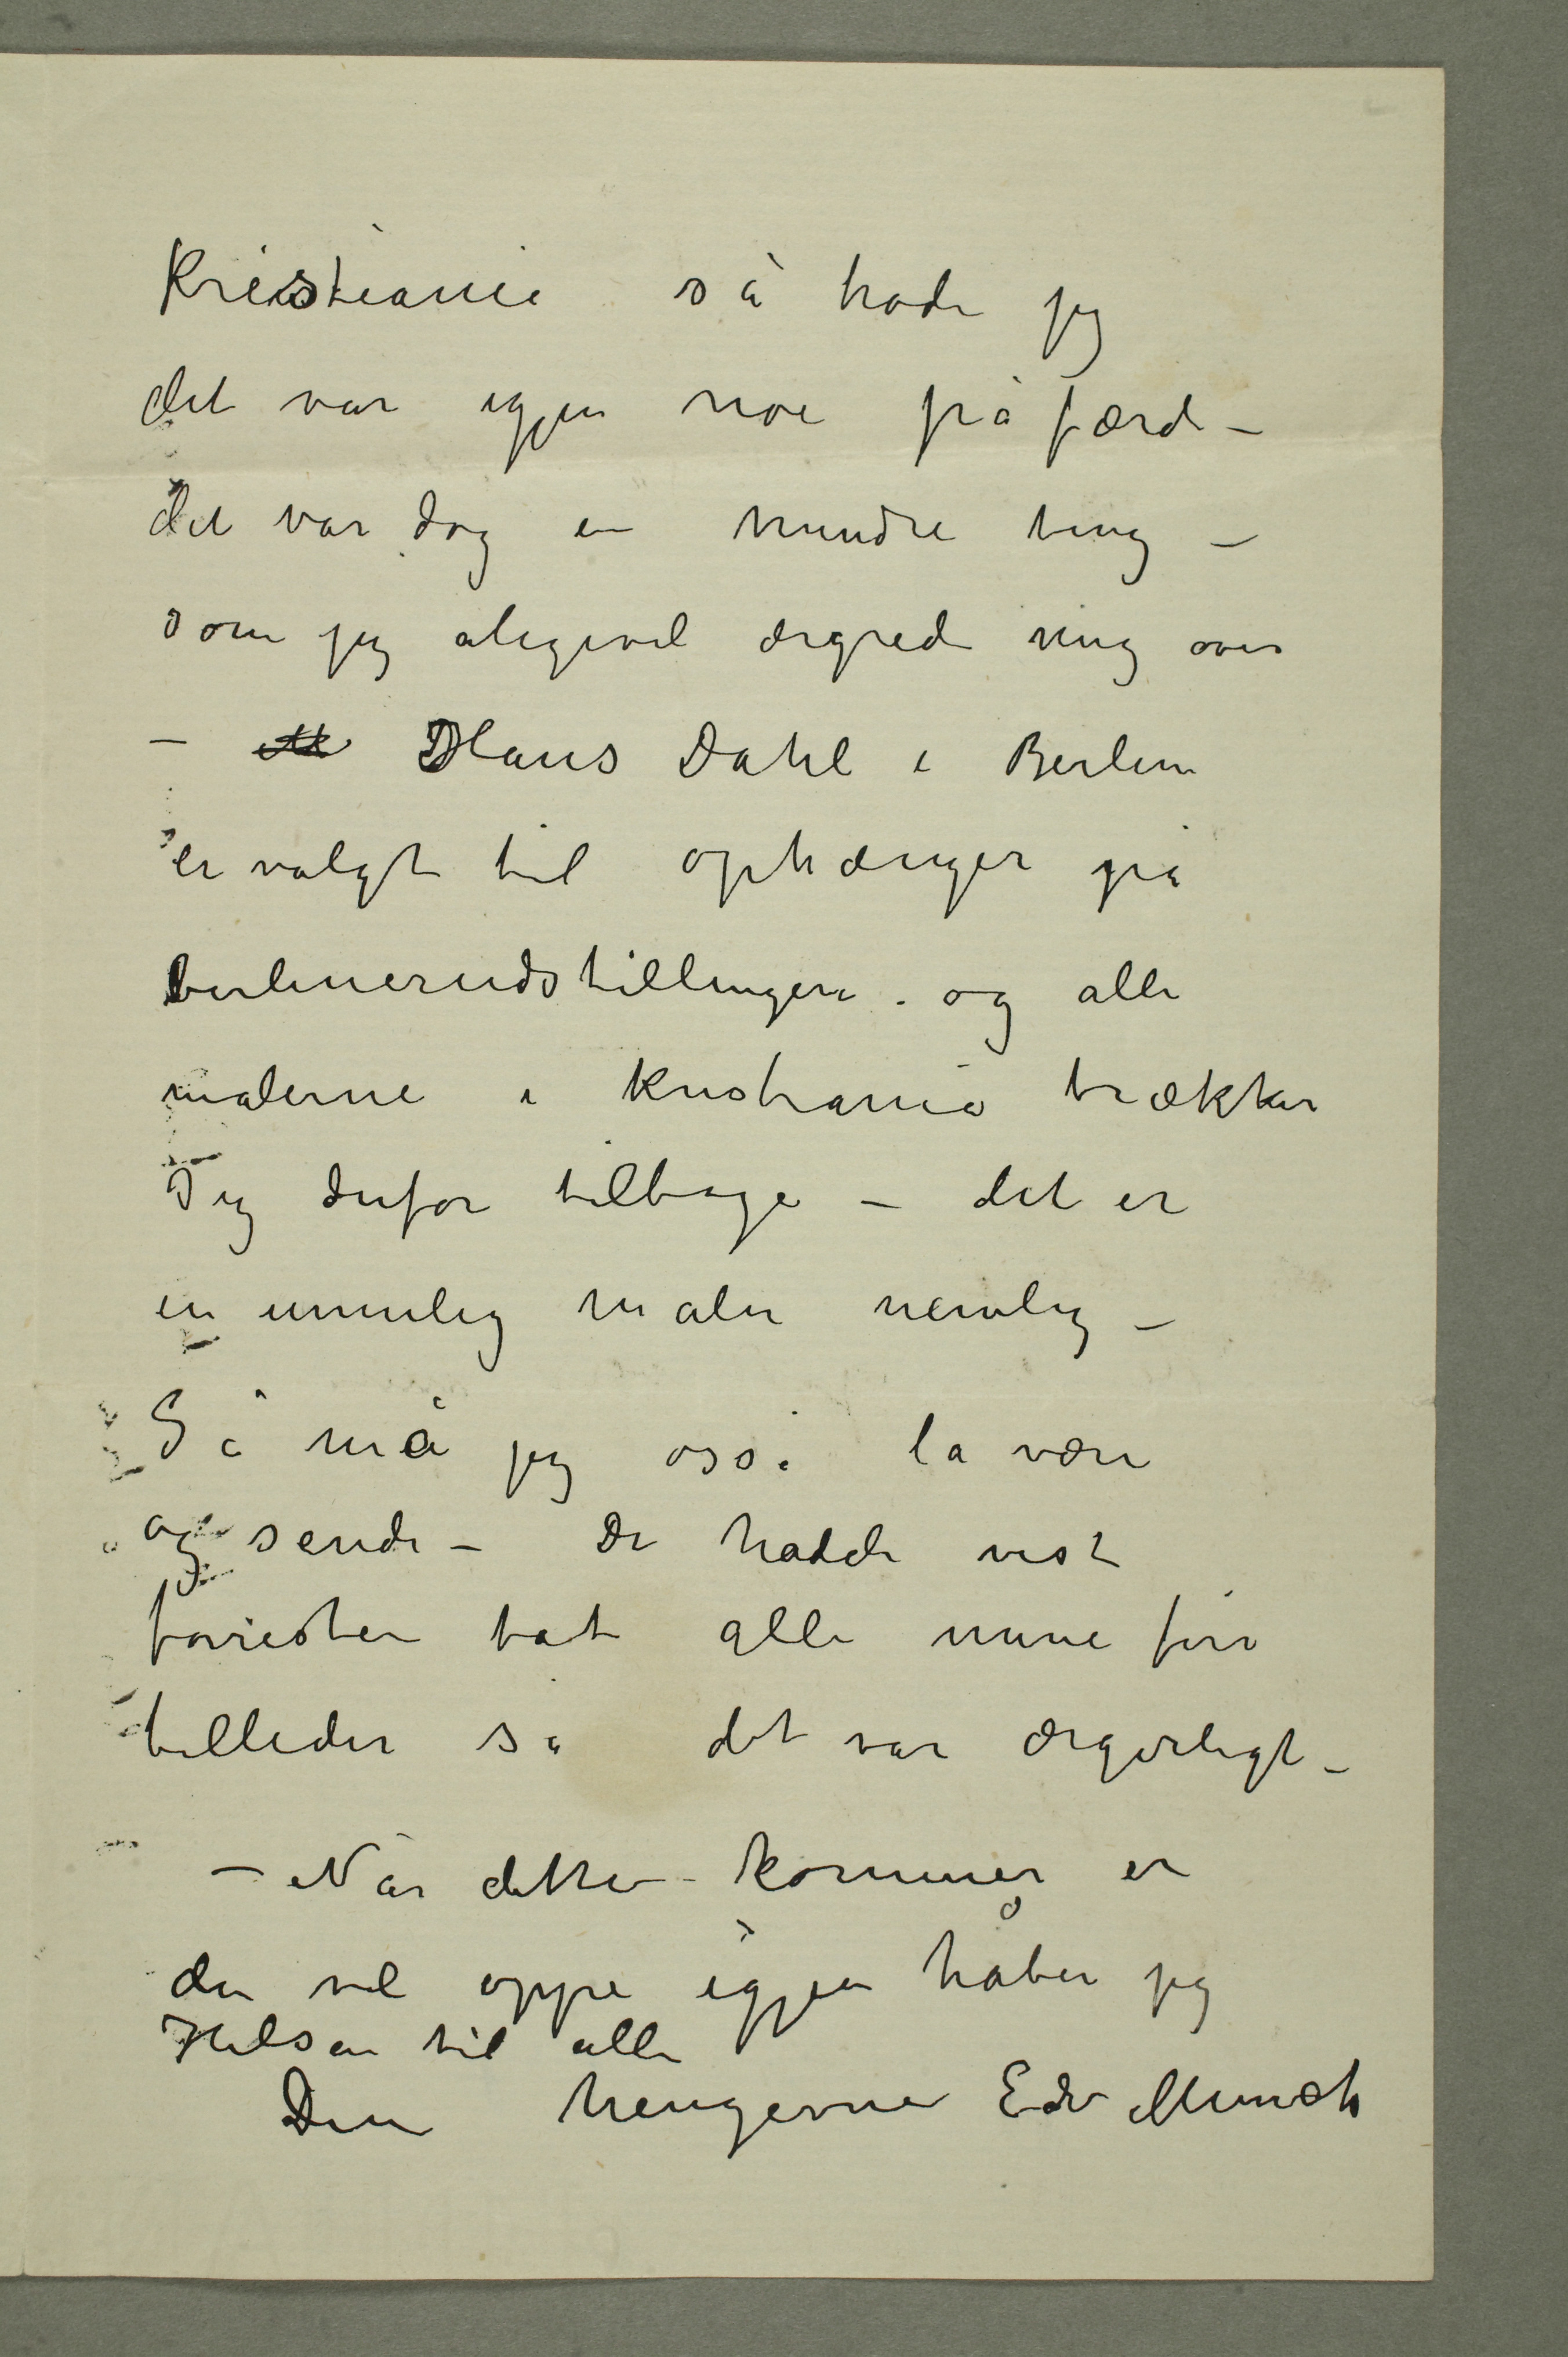 Kristiania så trode jeg
det var igjen noe på færde –
det var dog en mindre ting –
som jeg aligevel ærgrede mig over
– Hans Dahl i Berlin
er valgt til ophænger på
berlinerudstillingen. og alle
malerne i Kristiania trækker
sig derfor tilbage – det er
en umulig maler nemlig –
Så må jeg osså la være
og sende – De hadde vist
forresten tat alle mine fire
billeder så det var ærgerligt –
– Når dette kommer er
du vel oppe igjen håber jeg
Hilsen til alle
Din hengivne Edv Munch